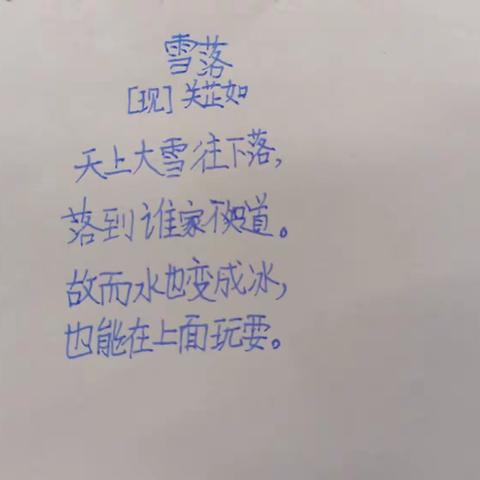 雪落
[现] 关芷如
天上大雪往下落，
落到谁家不知道。
故而水也变成冰，
也能在上面玩耍。